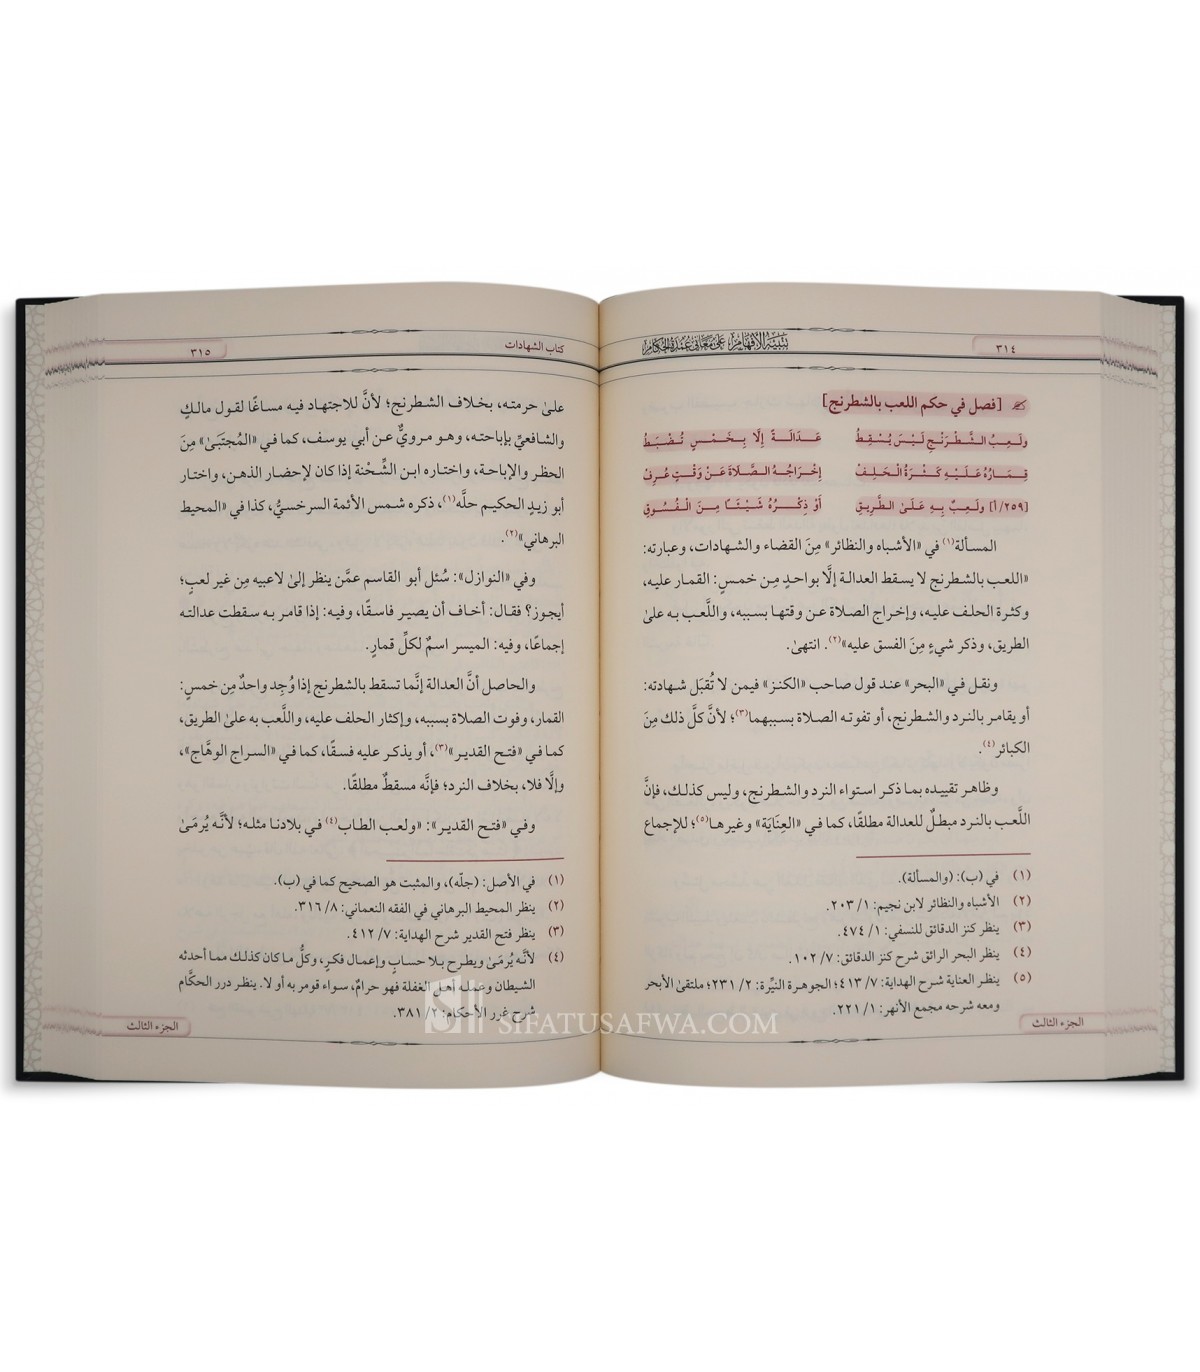 ٣١٤
تنبيه الأفهام على معاني عمدة الحكام
[فصل في حكم اللعب بالشطرنج]
وَلَعِبُ الشَّطْرَنْجِ لَيْسَ يُسْقِطُ عَدَالَةً إِلَّا بِخَمْسٍ تُضْبَطُ
قِمَارُهُ عَلَيْهِ كَثْرَةُ الْحَلِفِ إِخْرَاجُهُ الصَّلَاةَ عَنْ وَقْتٍ عُرِفْ
[٢٥٩/أ] وَلَعِبٌ بِهِ عَلَىٰ الطَّرِيقِ أَوْ ذِكْرُهُ شَيْئًا مِنَ الْفُسُوقِ
المسألة(١) في «الأشباه والنظائر» مِنَ القضاء والشهادات، وعبارته:
«اللعب بالشطرنج لا يسقط العدالة إلَّا بواحدٍ مِن خمسٍ: القمار عليه،
وكثرة الحلف عليه، وإخراج الصلاة عن وقتها بسببه، واللَّعب به علىٰ
الطريق، وذكر شيءٍ مِنَ الفسق عليه»(٢). انتهىٰ.
ونقل في «البحر» عند قول صاحب «الكنز» فيمن لا تُقبَل شهادته:
أو يقامر بالنرد والشطرنج، أو تفوته الصلاة بسببهما(٣)؛ لأنَّ كلَّ ذلك مِنَ
الكبائر(٤).
وظاهر تقييده بما ذكر استواء النرد والشطرنج، وليس كذلك، فإنَّ
اللَّعب بالنرد مبطلٌ للعدالة مطلقًا، كما في «العِنَايَة» وغيرها(٥)؛ للإجماع
(١) في (ب): (والمسألة).
(٢) الأشباه والنظائر لابن نجيم: ١/ ٢٠٣.
(٣) ينظر كنز الدقائق للنسفي: ١/ ٤٧٤.
(٤) ينظر البحر الرائق شرح كنز الدقائق: ٧/ ١٠٢.
(٥) ينظر العناية شرح الهداية: ٧/ ٤١٣؛ الجوهرة النيِّرة: ٢/ ٢٣١؛ ملتقىٰ الأبحر
ومعه شرحه مجمع الأنهر: ١/ ٢٢١.
الجزء الثالث
كتاب الشهادات
٣١٥
علىٰ حرمته، بخلاف الشطرنج؛ لأنَّ للاجتهاد فيه مساغًا لقول مالكٍ
والشافعيِّ بإباحته، وهو مرويٌّ عن أبي يوسف، كما في «المُجتَبَىٰ» مِنَ
الحظر والإباحة، واختاره ابن الشِّحْنة إذا كان لإحضار الذهن، واختار
أبو زيدٍ الحكيم حلَّه(١)، ذكره شمس الأئمة السرخسيُّ، كذا في «المحيط
البرهاني»(٢).
وفي «النوازل»: سُئل أبو القاسم عمَّن ينظر إلىٰ لاعبيه مِن غير لعبٍ؛
أيجوز؟ فقال: أخاف أن يصير فاسقًا، وفيه: إذا قامر به سقطت عدالته
إجماعًا، وفيه: الميسر اسمٌ لكلِّ قمارٍ.
والحاصل أنَّ العدالة إنَّما تسقط بالشطرنج إذا وُجِد واحدٌ مِن خمسٍ:
القمار، وفوت الصلاة بسببه، وإكثار الحلف عليه، واللَّعب به علىٰ الطريق،
كما في «فتح القدير»(٣)، أو يذكر عليه فسقًا، كما في «السراج الوهَّاج»،
وإلَّا فلا، بخلاف النرد؛ فإنَّه مسقطٌ مطلقًا.
وفي «فتح القدير»: «ولعب الطاب(٤) في بلادنا مثله؛ لأنَّه يُرمَىٰ
(١) في الأصل: (جلَّه)، والمثبت هو الصحيح كما في (ب).
(٢) ينظر المحيط البرهاني في الفقه النعماني: ٨/ ٣١٦.
(٣) ينظر فتح القدير شرح الهداية: ٧/ ٤١٢.
(٤) لأنَّه يُرمَىٰ ويطرح بلا حسابٍ وإعمال فكرٍ، وكلُّ ما كان كذلك مما أحدثه
الشيطان وعمله أهل الغفلة فهو حرامٌ، سواء قومر به أو لا. ينظر درر الحكَّام
شرح غرر الأحكام: ٢/ ٣٨١.
الجزء الثالث
SIFATUSAFWA.COM